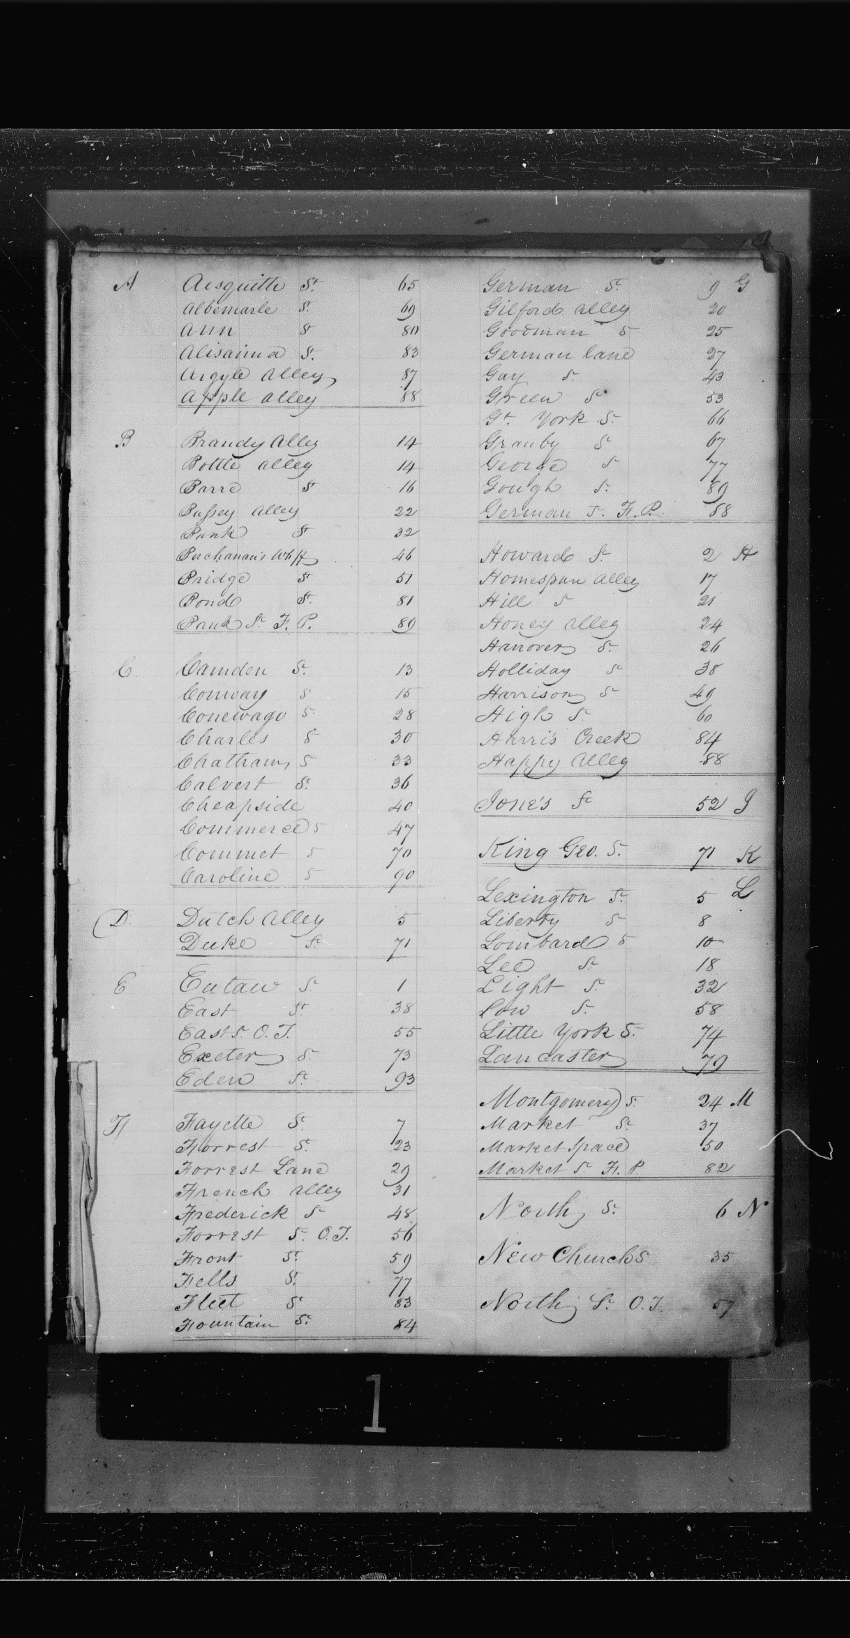 A Aisquith St. 65
Albemarle St. 69
Ann St 80
Alisanna St. 83
Argyle Alley 87
Apple alley 88
B Brandy Alley 14
Bottle alley 14
Barre St 16
Pussey Alley 22
Bank St 32
Buchanan's Whff 46
Bridge St 51
Bond St. 81
Bank St F. P. 89
C Camden St. 13
Conway S 15
Conewago S 28
Charles S 30
Chatham S 33
Calvert St. 36
Cheapside 40
Commerce S 47
Commet S 70
Caroline S 90
D Dutch Alley 5
Duke St. 71
E Eutaw St. 1
East St. 38
East S. O.T. 55
Exeter St 73
Eden St. 93
F Fayette St. 7
Forrest St. 23
Forrest Lane 29
French Alley 31
Frederick St 48
Forrest S. O.T. 56
Front St. 59
Fells St. 77
Fleet St 83
Fountain St. 84
German St. 9 G
Gilford alley 20
Goodman S 25
German lane 27
Gay St. 43
Green St 53
Gt. York St. 66
Granby St 67
George St 77
Gough St. 89
German St. F. P. 88
Howard St. 2 H
Homespun Alley 17
Hill St 21
Honey Alley 24
Hanover St. 26
Holliday St 38
Harrison St 49
High St 60
Harris Creek 84
Happy Alley 88
Jone's St 52 J
King Geo. S. 71 K
Lexington St. 5 L
Liberty S 8
Lombard S 10
Lee St. 18
Light St. 32
Low St. 58
Little York S. 74
Lancaster 79
Montgomery S. 24 M
Market St. 37
Market Space 50
Market St F. P. 82
North St. 6 N
New Church S 35
North St. O.T. 57
1